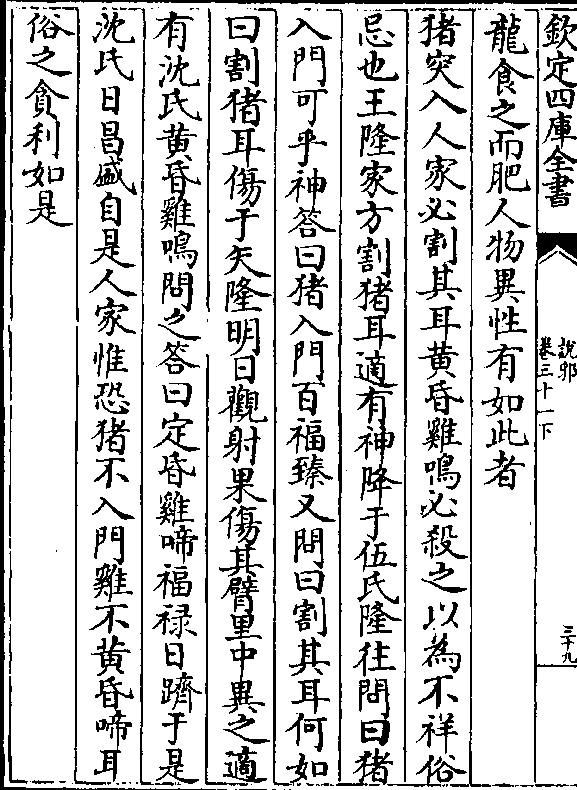 欽定四庫全書
說郛
卷三十一下
三十九
龍食之而肥人物異性有如此者
猪突入人家必割其耳黄昏雞鳴必殺之以為不祥俗
忌也王隆家方割猪耳適有神降于伍氏隆往問曰猪
入門可乎神答曰猪入門百福臻又問曰割其耳何如
曰割猪耳傷于矢隆明日觀射果傷其臂里中異之適
有沈氏黄昏雞鳴問之答曰定昏雞啼福禄日躋于是
沈氏日昌盛自是人家惟恐猪不入門雞不黄昏啼耳
俗之貪利如是